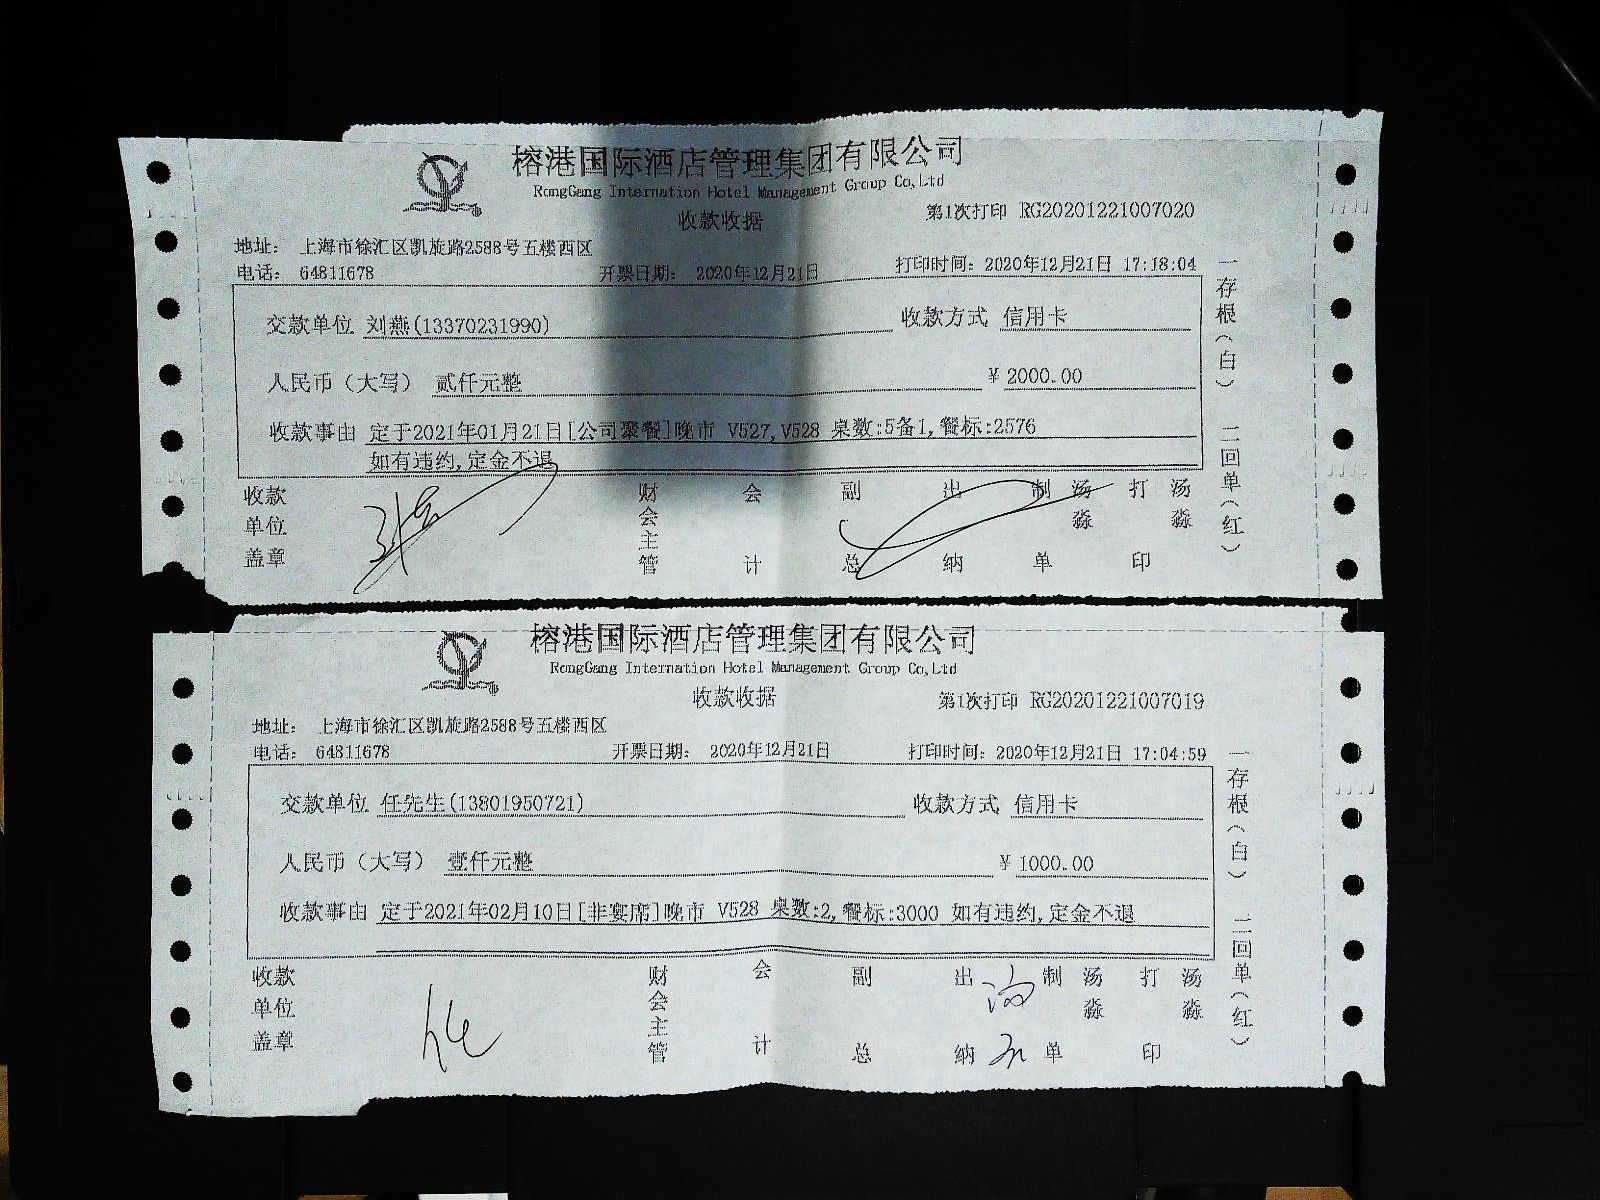 榕港国际酒店管理集团有限公司
RongGang Internation Hotel Management Group Co,Ltd
收款收据
第1次打印 RG20201221007020
地址： 上海市徐汇区凯旋路2588号五楼西区
电话： 64811678 开票日期： 2020年12月21日 打印时间：2020年12月21日 17:18:04
交款单位 刘燕(13370231990) 收款方式 信用卡
人民币（大写） 贰仟元整 ¥ 2000.00
收款事由 定于2021年01月21日[公司聚餐]晚市 V527,V528 桌数:5备1,餐标:2576
如有违约,定金不退
收款单位盖章 财会主管 会计 副总 出纳 制单 汤淼 打印 汤淼
一存根（白） 二回单（红）
榕港国际酒店管理集团有限公司
RongGang Internation Hotel Management Group Co,Ltd
收款收据
第1次打印 RG20201221007019
地址： 上海市徐汇区凯旋路2588号五楼西区
电话： 64811678 开票日期： 2020年12月21日 打印时间：2020年12月21日 17:04:59
交款单位 任先生(13801950721) 收款方式 信用卡
人民币（大写） 壹仟元整 ¥ 1000.00
收款事由 定于2021年02月10日[非宴席]晚市 V528 桌数:2,餐标:3000 如有违约,定金不退
收款单位盖章 财会主管 会计 副总 出纳 制单 汤淼 打印 汤淼
一存根（白） 二回单（红）